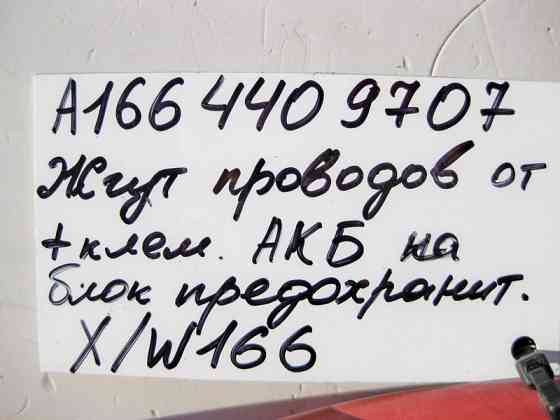 А166 440 9707
Жгут проводов от
+клем. АКБ на
блок предохранит.
X/W166